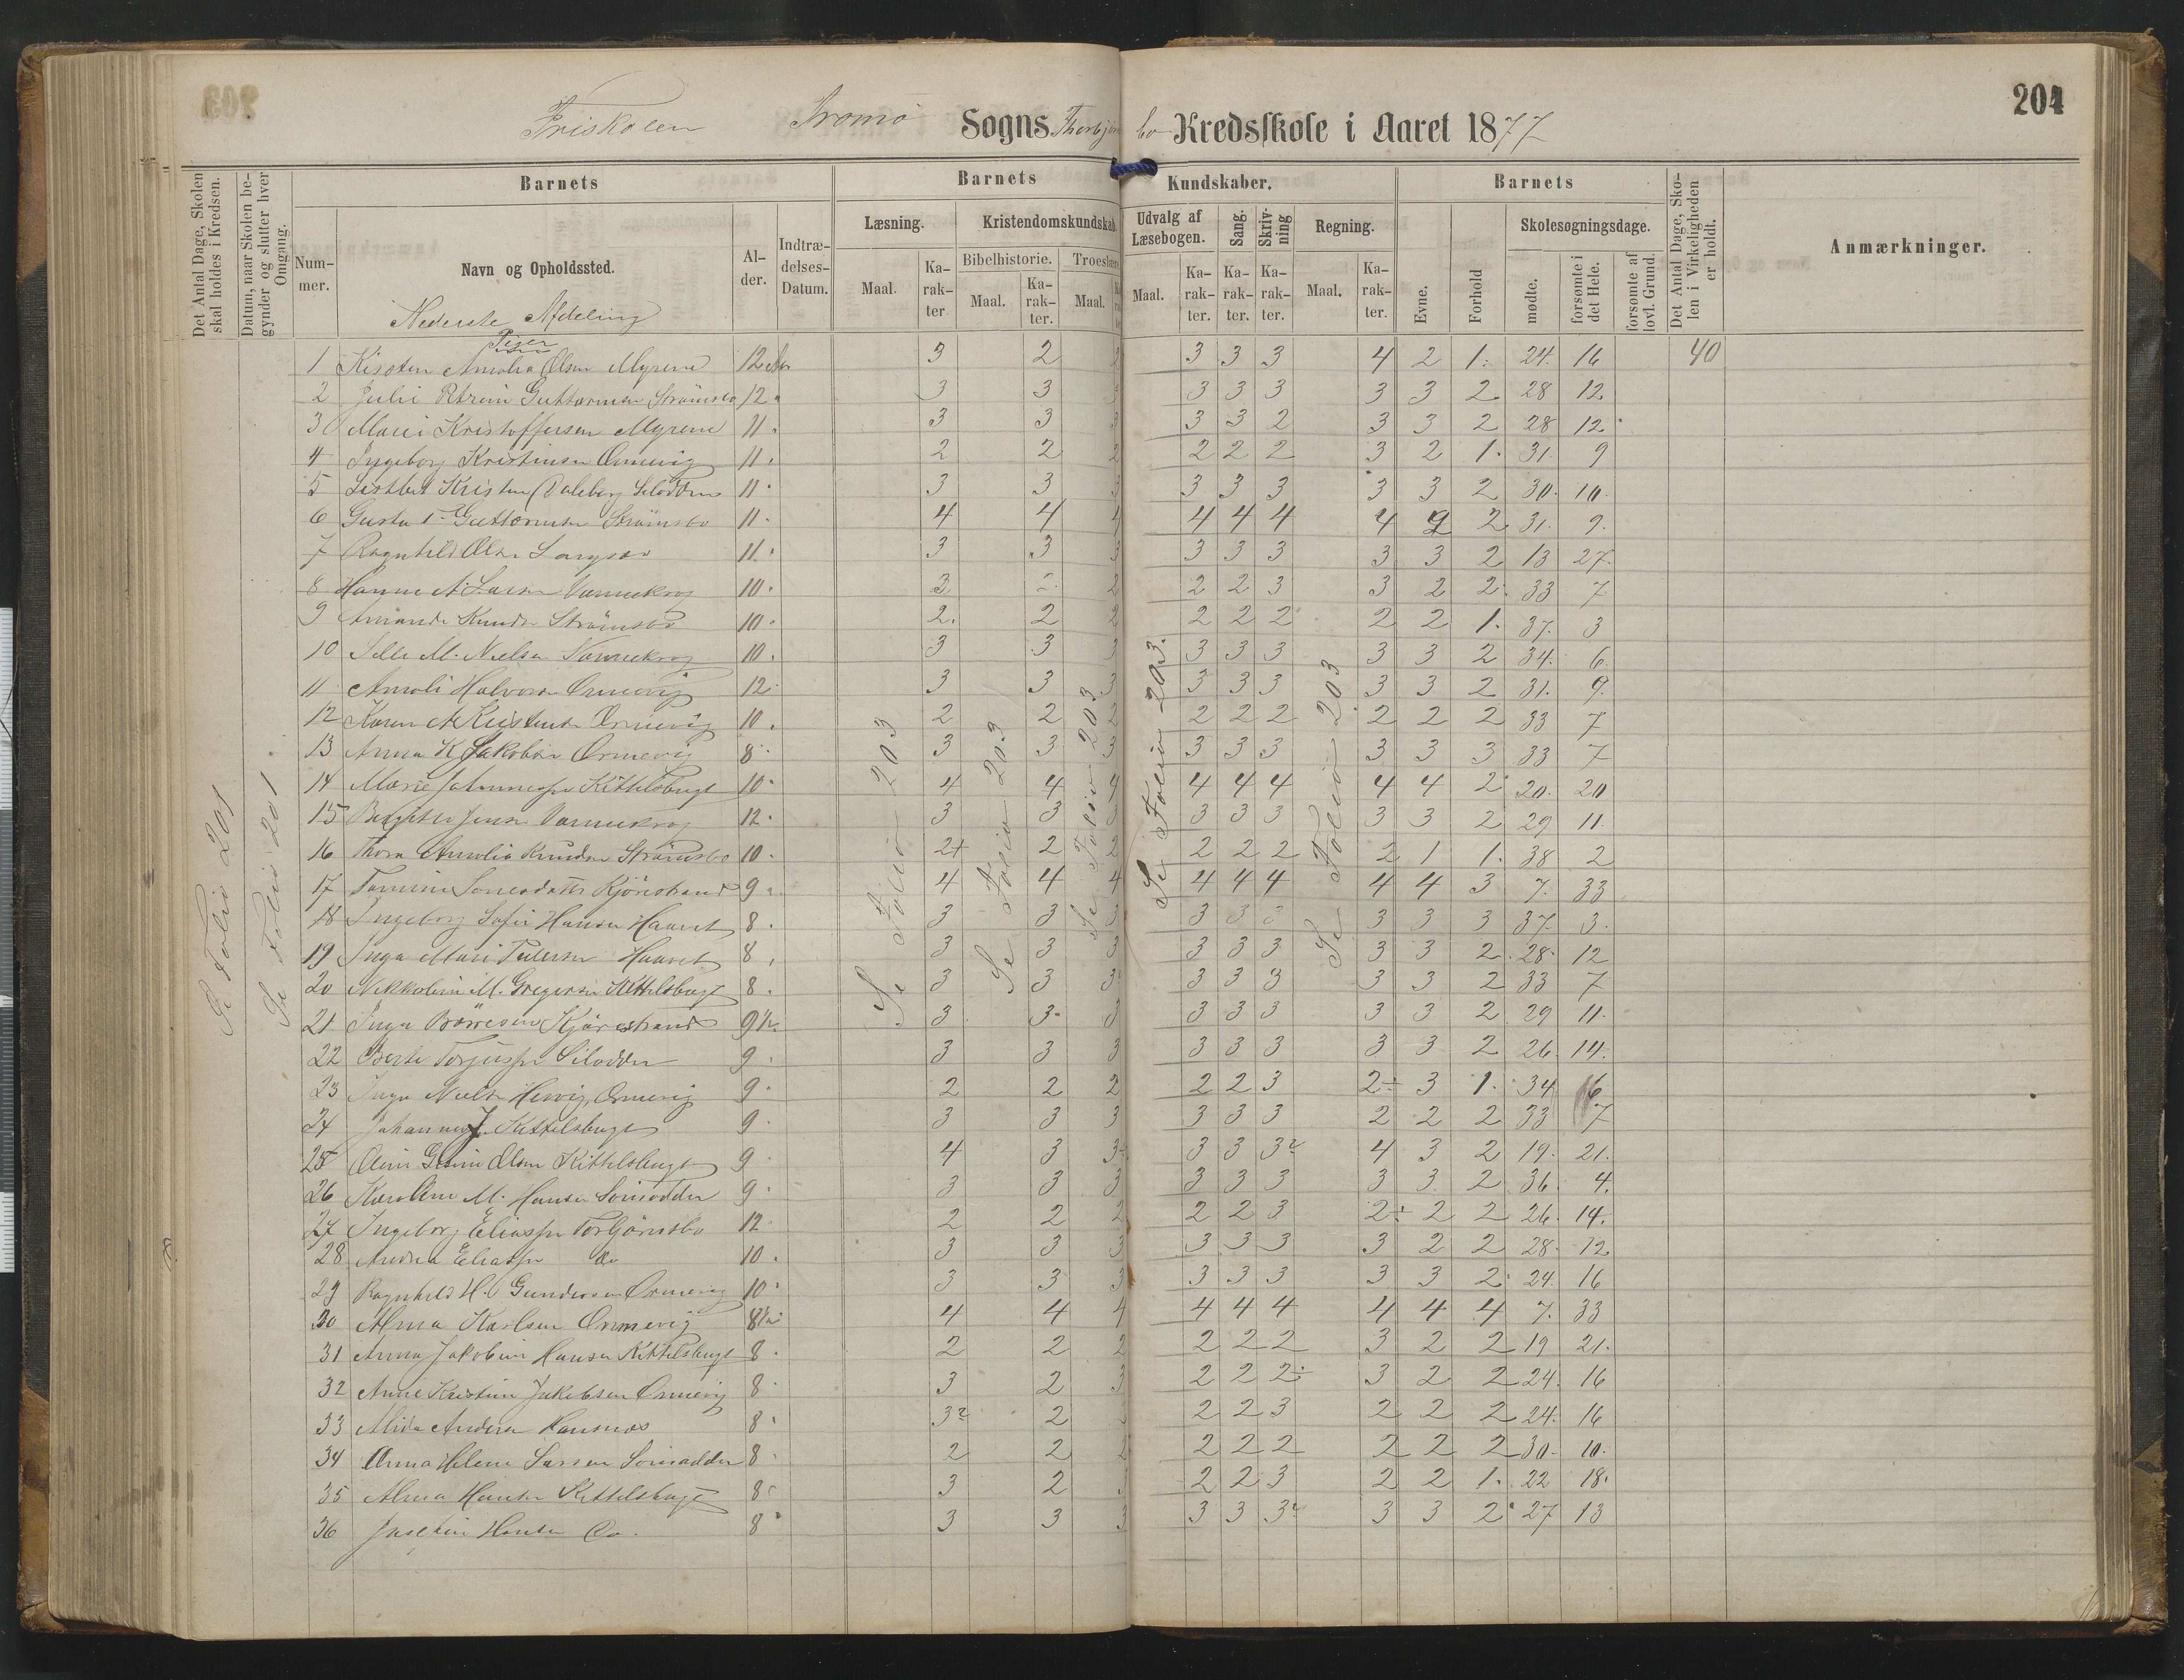 204
Friskolen Tromö Sogns Thorbjørnsbo Kredsskole i Aaret 1877
Det Antal Dage, Skolen skal holdes i Kredsen.
Datum, naar Skolen begynder og slutter hver Omgang.
Barnets
Nummer.
Navn og Opholdssted.
Alder.
Indtrædelses-Datum.
Barnets Kundskaber.
Læsning.
Kristendomskundskab.
Bibelhistorie.
Troeslære
Udvalg af Læsebogen.
Sang.
Skrivning
Regning.
Maal.
Karakter
Maal.
Karakter.
Maal.
Maal.
Karakter.
Karakter.
Karakter.
Maal.
Karakter.
Barnets
Evne.
Forhold
Skolesøgningsdage.
mødte.
forsømte i det Hele.
forsømte af lovl. Grund.
Det Antal Dage, Skolen i Virkeligheden er holdt.
Anmærkninger.
Nederste Afdeling
Piger
Se Folio 201
Se Folio 201
Se Folio 203
Se Folio 203
Se Folio 203
Se Folio 203.
Se Folio 203
1 Amalia Olsen Myrene 12 Aar 3 2 2 3 3 3 4 2 1. 24. 16 40
2 Julie Guttormsen Strömsbo 12 3 3 3 3 3 3 3 3 2 28 12
3 Marie Kristoffersen Myrene 11 3 3 3 3 3 2 3 3 2 28 12
4 Ingeborg Kristensen Ormevig 11 2 2 2 2 2 2 3 2 1. 31. 9
5 Kristen Daleberg 11 3 3 3 3 3 3 3 3 2 30. 10.
6 Guttormsen Strömsbo 11 4 4 4 4 4 4 4 2 31. 9.
7 Ragnhild Olsen 11 3 3 3 3 3 3 3 3 2 13 27.
8 Hanne A. Larsen Vannekrog 10 3 2 2 2 3 3 2 2 33 7
9 Amanda Knudsen Strömsbo 10 2. 2 2 2 2 2 2 2 1. 37. 3
10 M. Nielsen Vannekrog 10 3 3 3 3 3 3 3 3 2 34. 6
11 Amali Halvorsen Ormevig 12 3 3 3 3 3 3 3 3 2 31. 9.
12 Karen A Kristensen Ormevig 10 2 2 2 2 2 2 2 2 2 33 7
13 Anna K Jakobsen Ormevig 8 3 3 3 3 3 3 3 3 3 33 7
14 Marie Johannesen Kittelsbugt 10 4 4 4 4 4 4 4 4 2 20. 20
15 Jensen Vannekrog 12 3 3 3 3 3 3 3 3 2 29 11.
16 Thora Amalia Knudsen Strömsbo 10 2+ 2 2 2 2 2 2 1 1. 38 2
17 Kjörestrand 9 4 4 4 4 4 4 4 4 3 7. 33
18 Ingeborg Sofie Hansen Haavet 8 3 3 3 3 3 3 3 3 3 37. 3.
19 Inga Mari Haavet 8 3 3 3 3 3 3 3 3 2 28 12
20 M. Gregersen Kittelsbugt 8 3 3 3 3 3 3 3 3 2 33 7
21 Inga Börresen Kjörestrand 9½ 3 3 3 3 3 3 3 3 2 29 11.
22 Berte Torjussen 9 3 3 3 3 3 3 3 3 2 26. 14.
23 Inga Nielsen Ormevig 9 2 2 2 2 2 3 2÷ 3 1. 34 6
24 Johanne J. Kittelsbugt 9 3 3 3 3 3 3 2 2 2 33 7
25 Olsen Kittelsbugt 9 4 3 3 3 3 3 4 3 2 19. 21.
26 Karoline M. Hansen 9 3 3 3 3 3 3 3 3 2 36. 4.
27 Ingeborg Eliassen Torbjörnsbo 12 2 2 2 2 2 3 2÷ 2 2 26. 14.
28 Andrea Eliassen do 10 3 3 3 3 3 3 3 2 2 28. 12
29 Ragnhild H. Gundersen Ormevig 10 3 3 3 3 3 3 3 3 2 24. 16
30 Alma Karlsen Ormevig 8½ 4 4 4 4 4 4 4 4 4 7. 33
31 Anna Jakobine Hansen Kittelsbugt 8 2 2 2 2 2 2 3 2 2 19 21.
32 Anne Kristine Jakobsen Ormevig 8 3 2 3 2 2 2÷ 3 2 2 24. 16
33 Alida Andersen 8 3 2 2 2 3 2 2 2 24. 16
34 Anna Helene Larsen 8 2 2 2 2 2 2 2 2 2 30. 10.
35 Alma Hansen Kittelsbugt 8 3 2 3 2 2 3 2 2 1. 22 18.
36 Josefine Hansen Do. 8 3 3 3 3 3 3 3 3 2 27 13